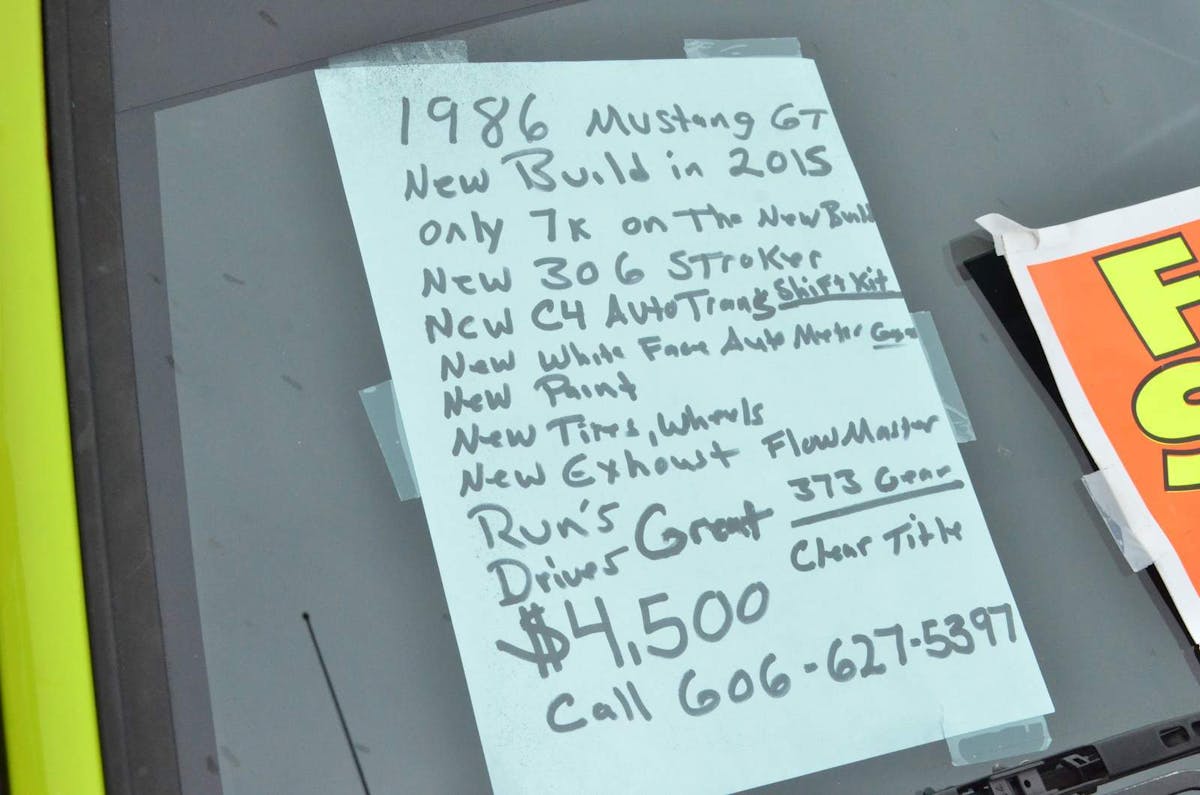 1986 Mustang GT
New Build in 2015
only 7k on The New Build
New 306 STroKer
New C4 Auto Trans Shift Kit
New White Face Auto Meter
New Paint
New Tires, Wheels
New Exhoust FlowMaster
373 Gear
Run's
Drives Great
Clear Title
$4,500
Call 606-627-5397
F
S